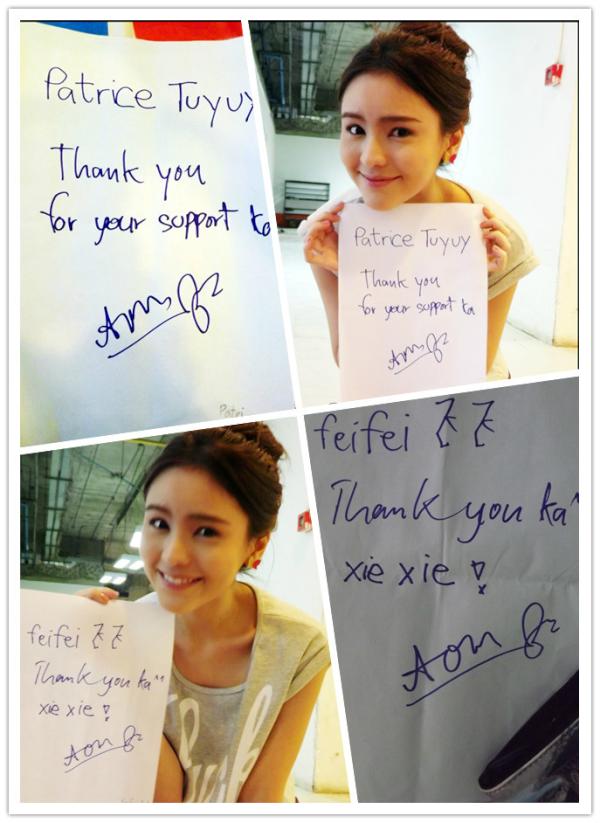 Patrice Tuyuy
Thank you
for your support ka
Aom
Patrice Tuyuy
Thank you
for your support ka
Aom
feifei 飞飞
Thank you ka^^
xie xie!
Aom
feifei 飞飞
Thank you ka^
xie xie!
Aom